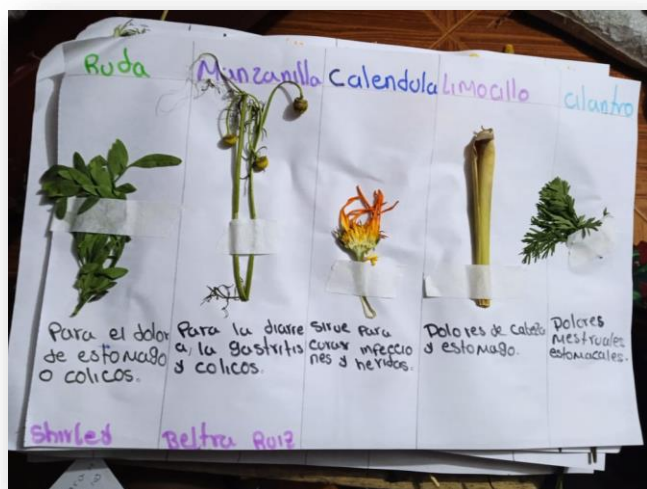 Ruda
Para el dolor
de estomago
o colicos.
Manzanilla
Para la diarre
a, la gastritis
y colicos.
Calendula
Sirve para
curar infeccio
nes y heridas.
Limocillo
Dolores de cabeza
y estomago.
cilantro
Dolores
mestruales
estomacales.
Shirley
Beltra Ruiz